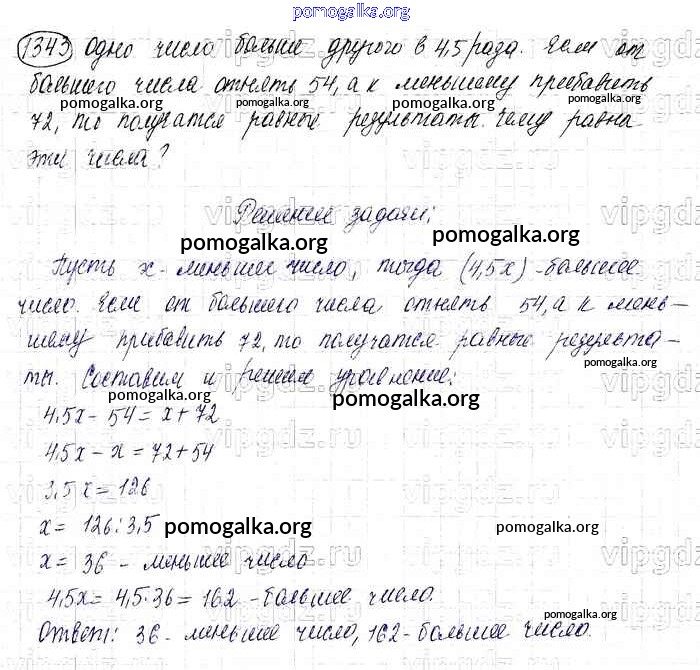 pomogalka.org
1343 Одно число больше другого в 4,5 раза. Если от
большего числа отнять 54, а к меньшему прибавить
pomogalka.org pomogalka.org pomogalka.org
72, то получатся равные результаты. Чему равна
pomogalka.org pomogalka.org
эти числа?
vipgdz.ru vipgdz.ru vipgdz
Решение задачи:
pomogalka.org pomogalka.org
Пусть x - меньшее число, тогда (4,5x) - большее
число. Если от большего числа отнять 54, а к мень-
шему прибавить 72, то получатся равные результа-
pomogalka.org
ты. Составим и решим уравнение:
vipgdz.ru vipgdz.ru vipgdz
pomogalka.org
4,5x - 54 = x + 72
4,5x - x = 72 + 54
vipgdz.ru vipgdz.ru vipgdz
3,5x = 126
x = 126 : 3,5
pomogalka.org pomogalka.org
x = 36 - меньшее число
vipgdz.ru vipgdz.ru vipgdz
4,5x = 4,5·36 = 162 - большее число.
pomogalka.org pomogalka.org
Ответ: 36 - меньшее число, 162 - большее число.
pomogalka.org